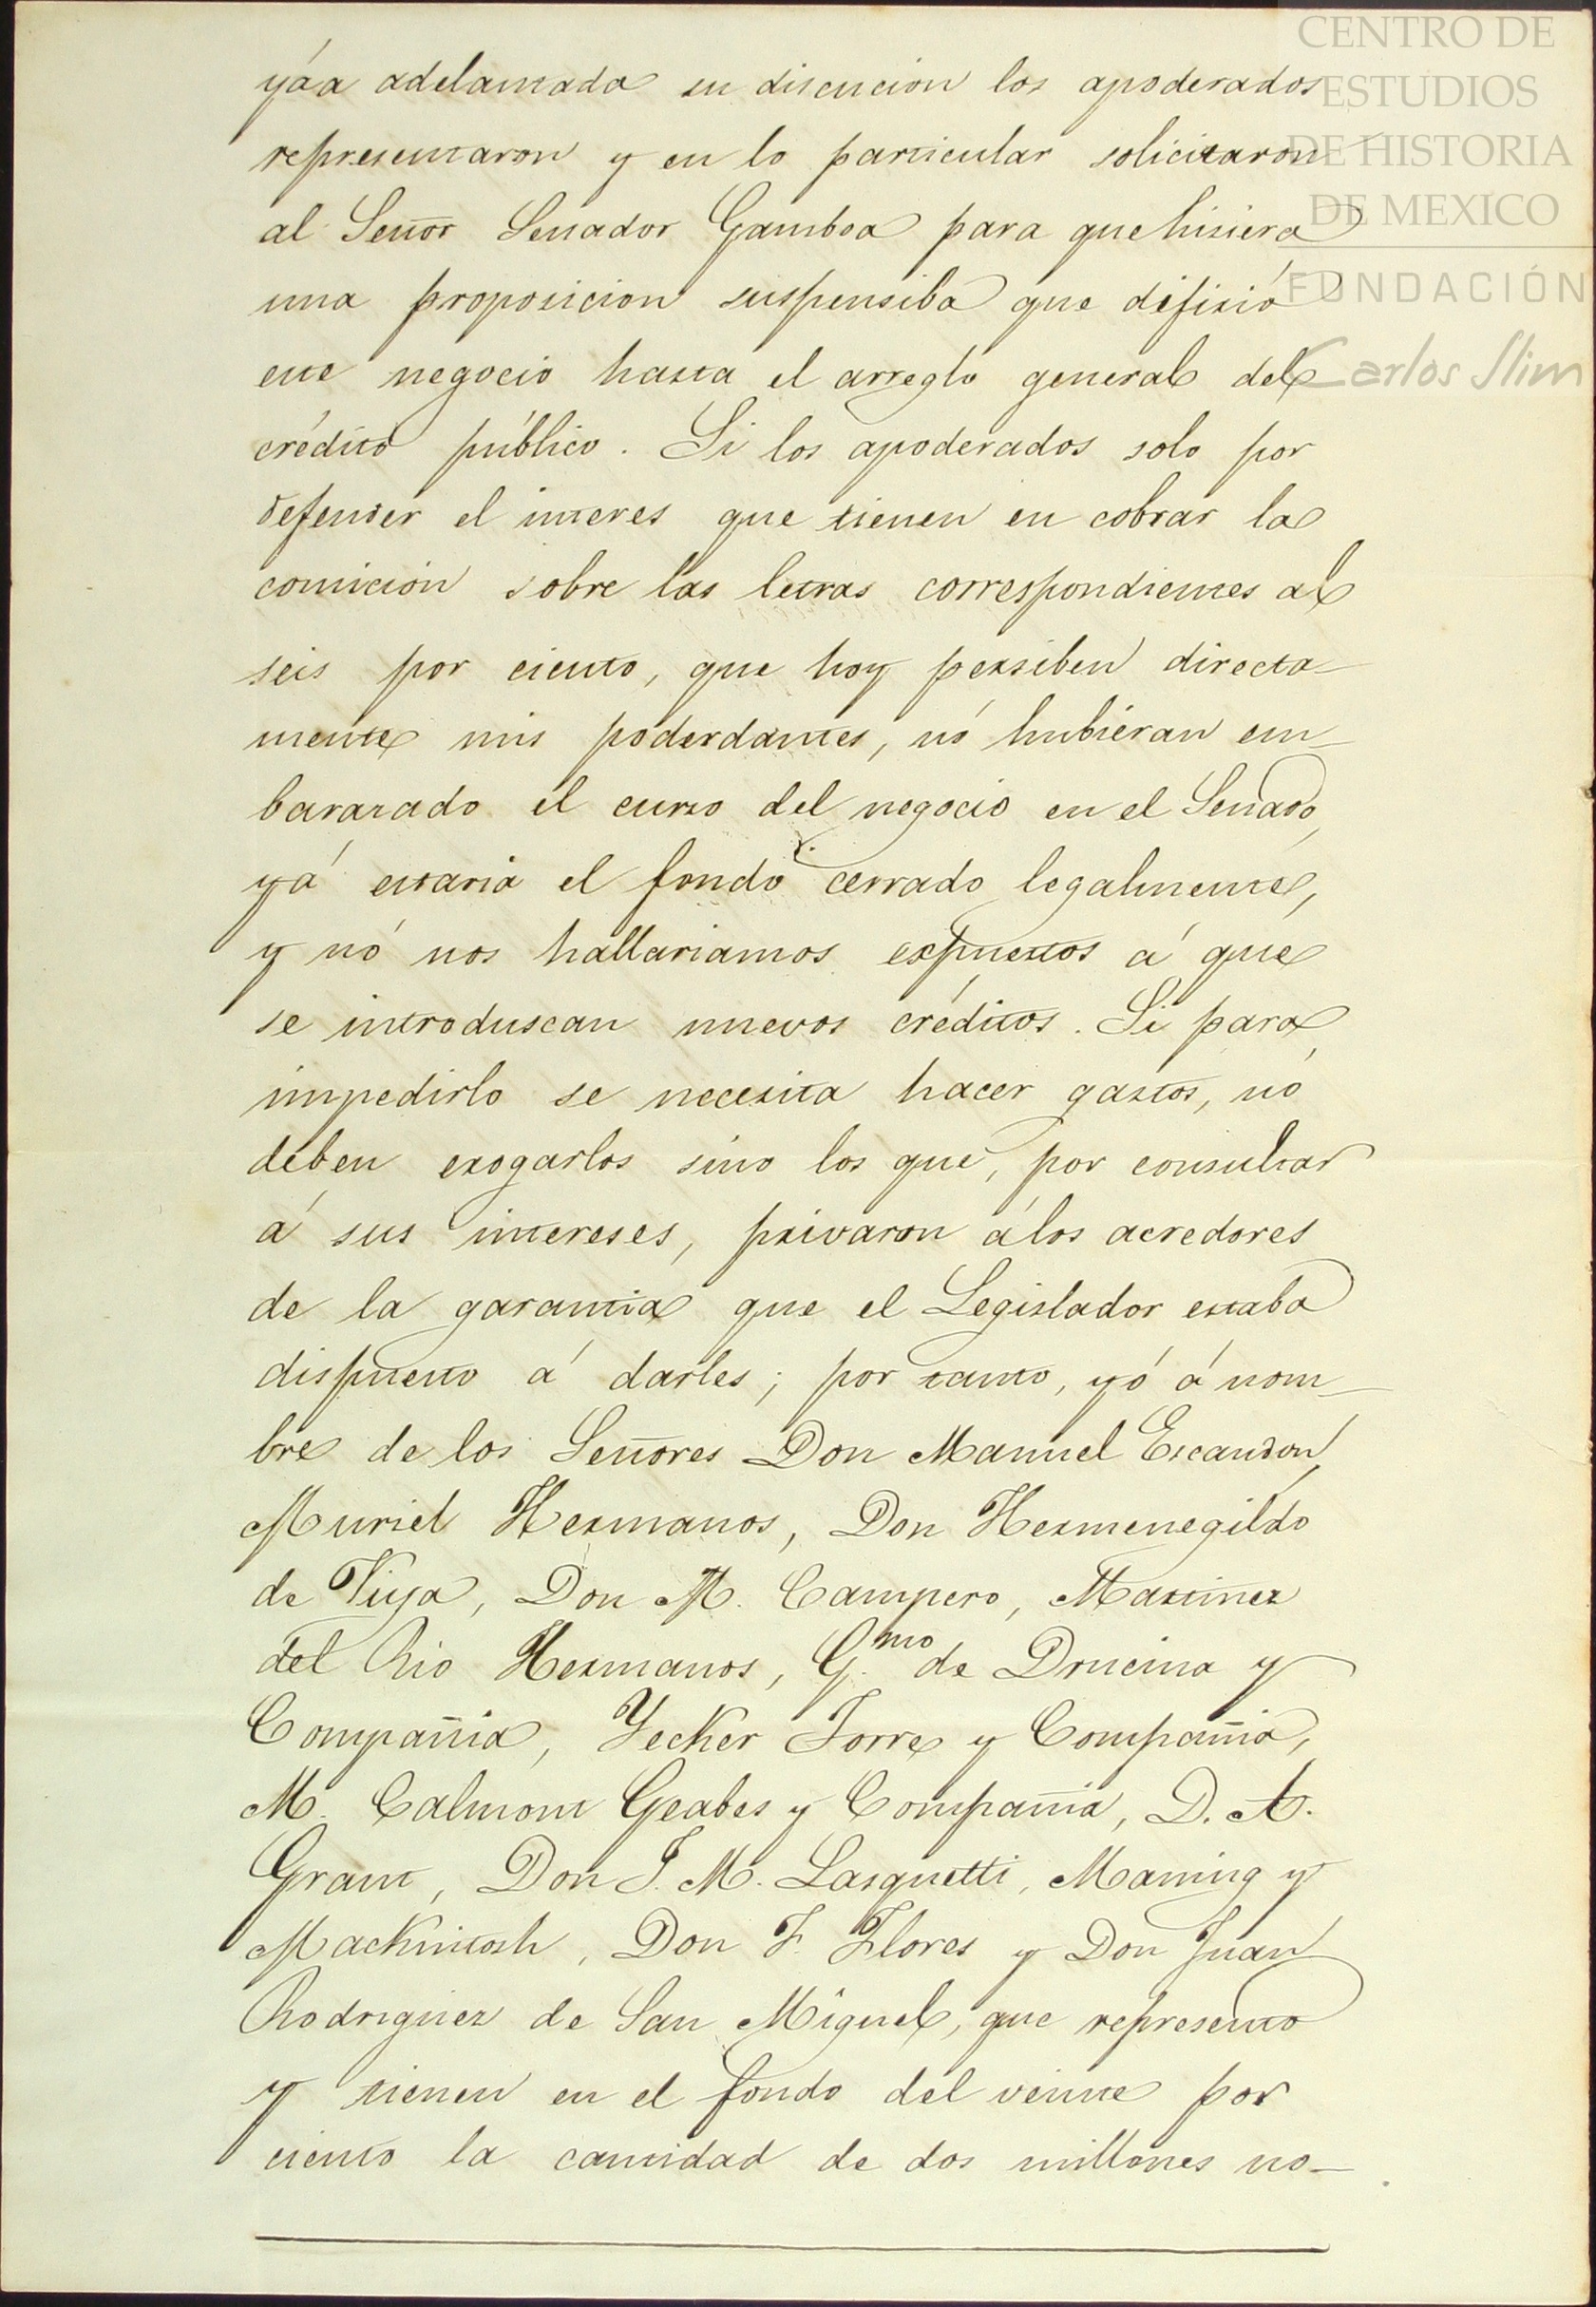 CENTRO DE
ESTUDIOS
DE HISTORIA
DE MEXICO
FUNDACIÓN
Carlos Slim
yá a adelantada su discucion los apoderados
representaron y en lo particular solicitaron
al Señor Senador Gamboa para que hisiera
una proposicion suspensiba que difirió
este negocio hasta el arreglo general del
crédito público. Si los apoderados solo por
defender el interes que tienen en cobrar la
comicion sobre las letras correspondientes al
seis por ciento, que hoy persiben directa-
mente mis poderdantes, nó hubieran em-
barazado el curso del negocio en el Senado,
yá estaria el fondo cerrado legalmente,
y nó nos hallariamos espuestos á que
se introduscan nuevos créditos. Si para
impedirlo se necesita hacer gastos, nó
deben erogarlos sino los que, por consultar
á sus intereses, privaron á los acredores
de la garantia que el Legislador estaba
dispuesto á darles; por tanto, yó á nom-
bre de los Señores Don Manuel Escandon,
Muriel Hermanos, Don Hermenegildo
de Viya, Don M. Campero, Martinez
del Rio Hermanos, G.mo de Drucina y
Compañia, Yecker Torre y Compañia,
M. Calmont Geabes y Compañia, D. A.
Grant, Don J. M. Lasquetti, Maning y
Mackintosh, Don F. Flores y Don Juan
Rodriguez de San Miguel, que represento
y tienen en el fondo del veinte por
ciento la cantidad de dos millones no-